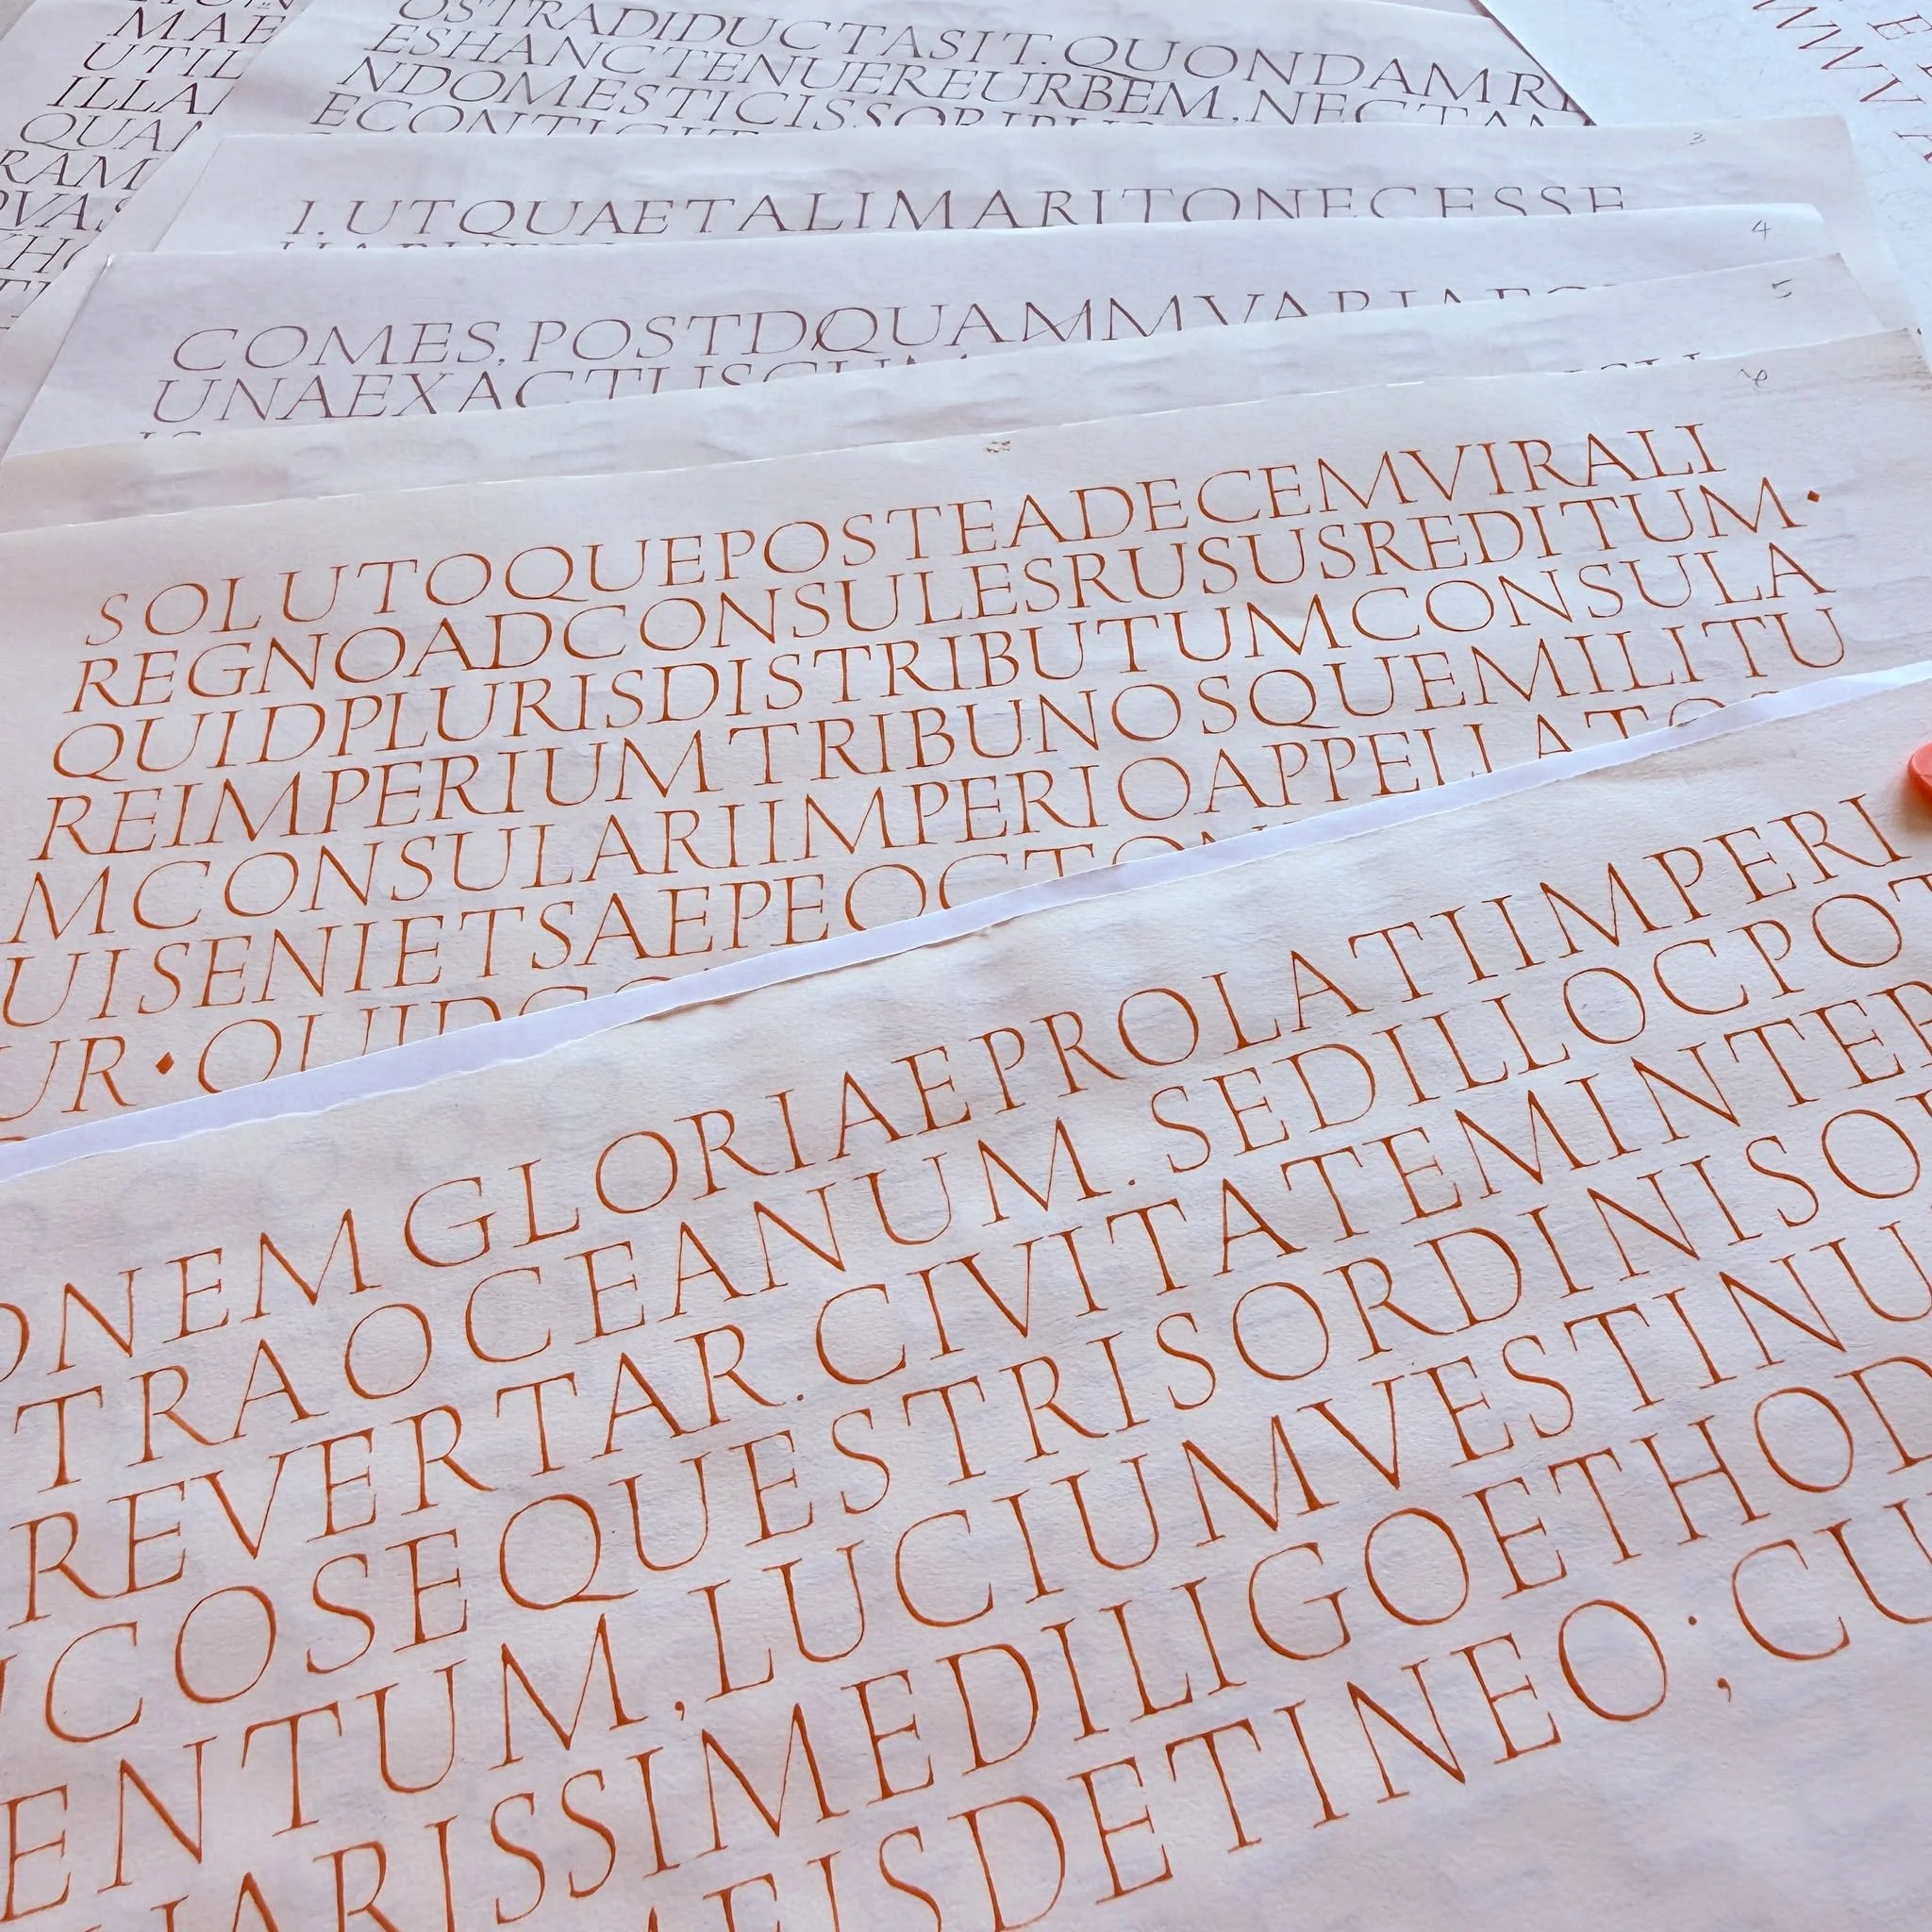 MAE
UTIL
ILLA
QUA
RAM
OSTRADIDUCTASIT. QUONDAMR
ESHANCTENUEREURBEM, NEC
NDOMESTICISS
3
I. UTQUAETALIMARITONECESSE
4
COMES, POSTDQUAMMVARIA
UNAEXACTUSCUM
5
6
SOLUTOQUEPOSTEADECEMVIRALI
REGNOADCONSULESRUSUSREDITUM·
QUIDPLURISDISTRIBUTUMCONSULA
REIMPERIUMTRIBUNOSQUEMILITU
MCONSULARIIMPERIOAPPELLATO
UISENIETSAEPEOCTON
UR·QUIDCO
ONEM GLORIAEPROLATIIMPERI
TRAOCEANUM. SEDILLOCPOT
REVERTAR. CIVITATEMINTER
COSEQUESTRISORDINISO
ENTUM, LUCIUMVESTINU
ARISSIMEDILIGOETHOD
EISDETINEO; CU